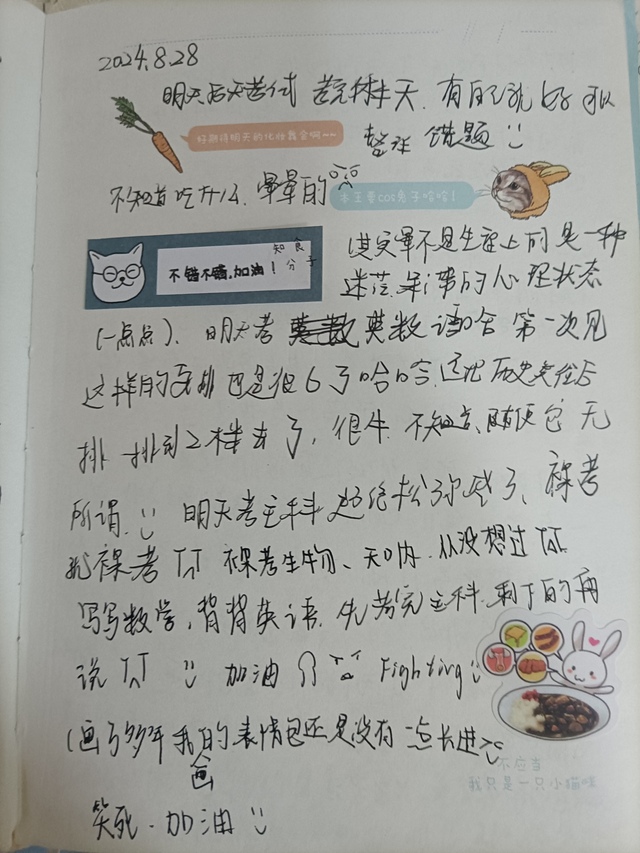 2024.8.28
明天后天考试 考完休半天. 有的玩 好可以
好期待明天的化妆舞会啊~~
整理 错题
不知道吃什么. 晕晕的
本王要cos兔子哈哈!
知 食
不错不错,加油! 分 子
其实晕不是生理上的 是一种
迷茫 的心理状态
(一点点). 明天考 英数语 第一次见
这样的安排 也是很6了哈哈. 历史
排 了, 很牛. 不知道、随便它 无
所谓. 明天考主科 了、裸考
就裸考 TT 裸考生物、天呐. 从没想过 TT
写写数学, 背背英语. 先考完主科. 剩下的再
说 TT 加油 Fighting
(画了多年 我的表情包还是没有一点长进
画
不应当
我只是一只小猫咪
笑死. 加油